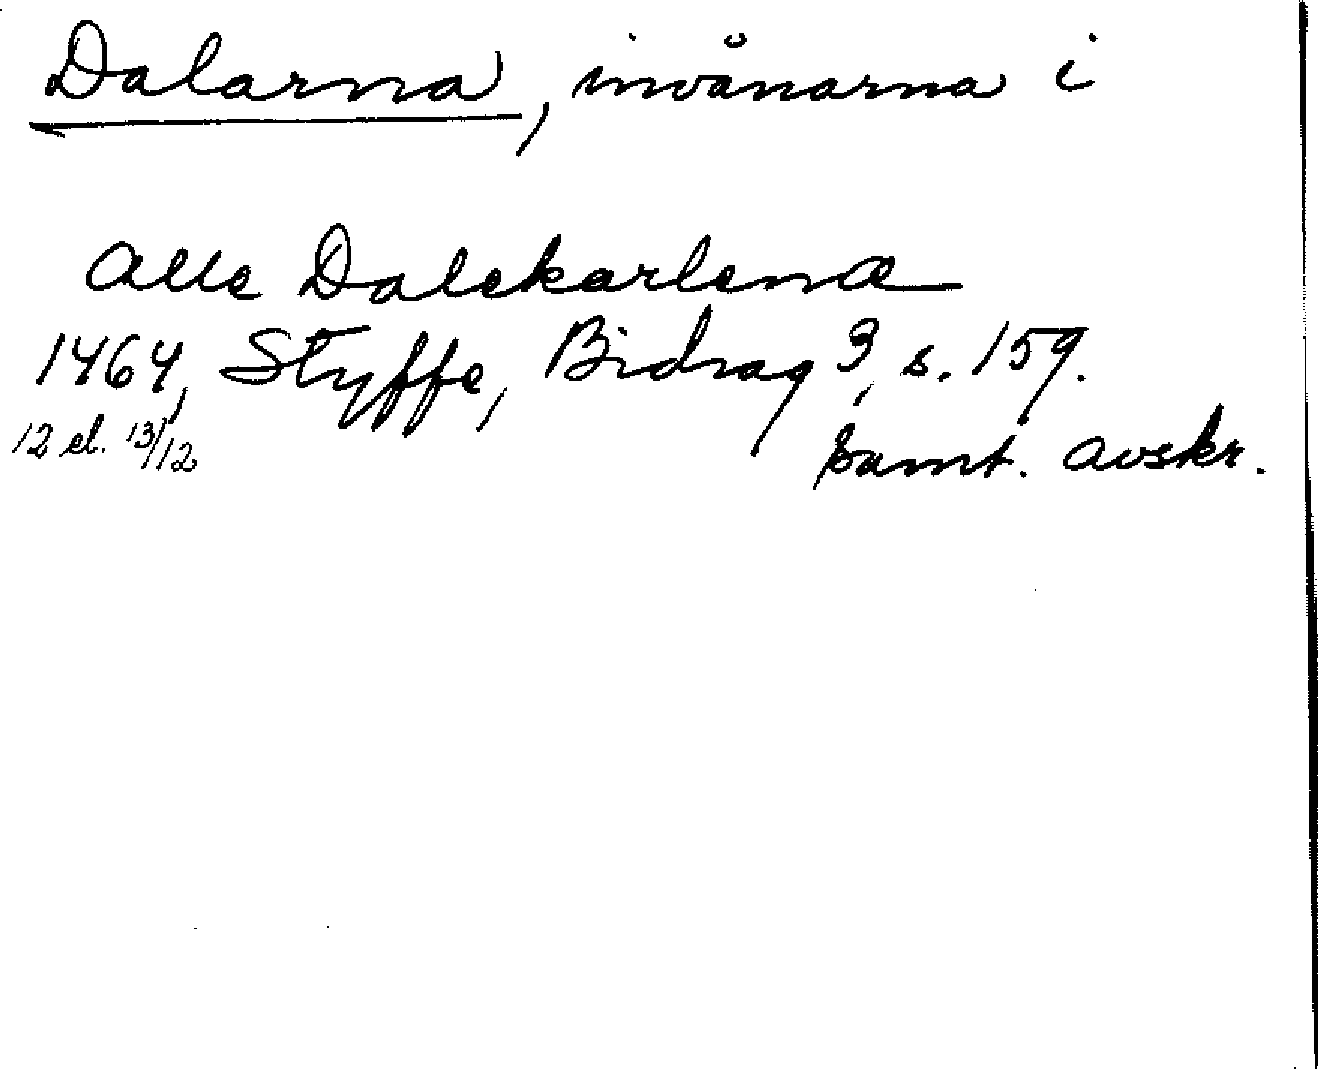 Dalarna, invånarna i
Alle Dalekarlena
1464, Styffe, Bidrag 3, s. 159.
12 el. 13/12
Samt. avskr.